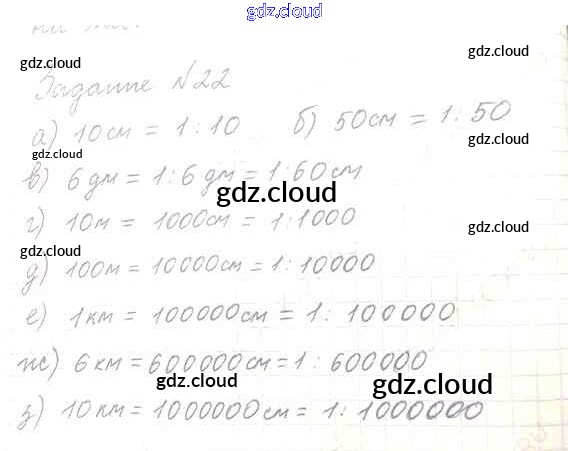 gdz.cloud
gdz.cloud gdz.cloud
Задание №22
а) 10см = 1:10 б) 50см = 1:50
gdz.cloud gdz.cloud
в) 6дм = 1:6дм = 1:60см
gdz.cloud
г) 10м = 1000см = 1:1000
gdz.cloud gdz.cloud
д) 100м = 10000см = 1:10000
е) 1км = 100000см = 1:100000
ж) 6км = 600000см = 1:600000
gdz.cloud gdz.cloud
з) 10км = 1000000см = 1:1000000